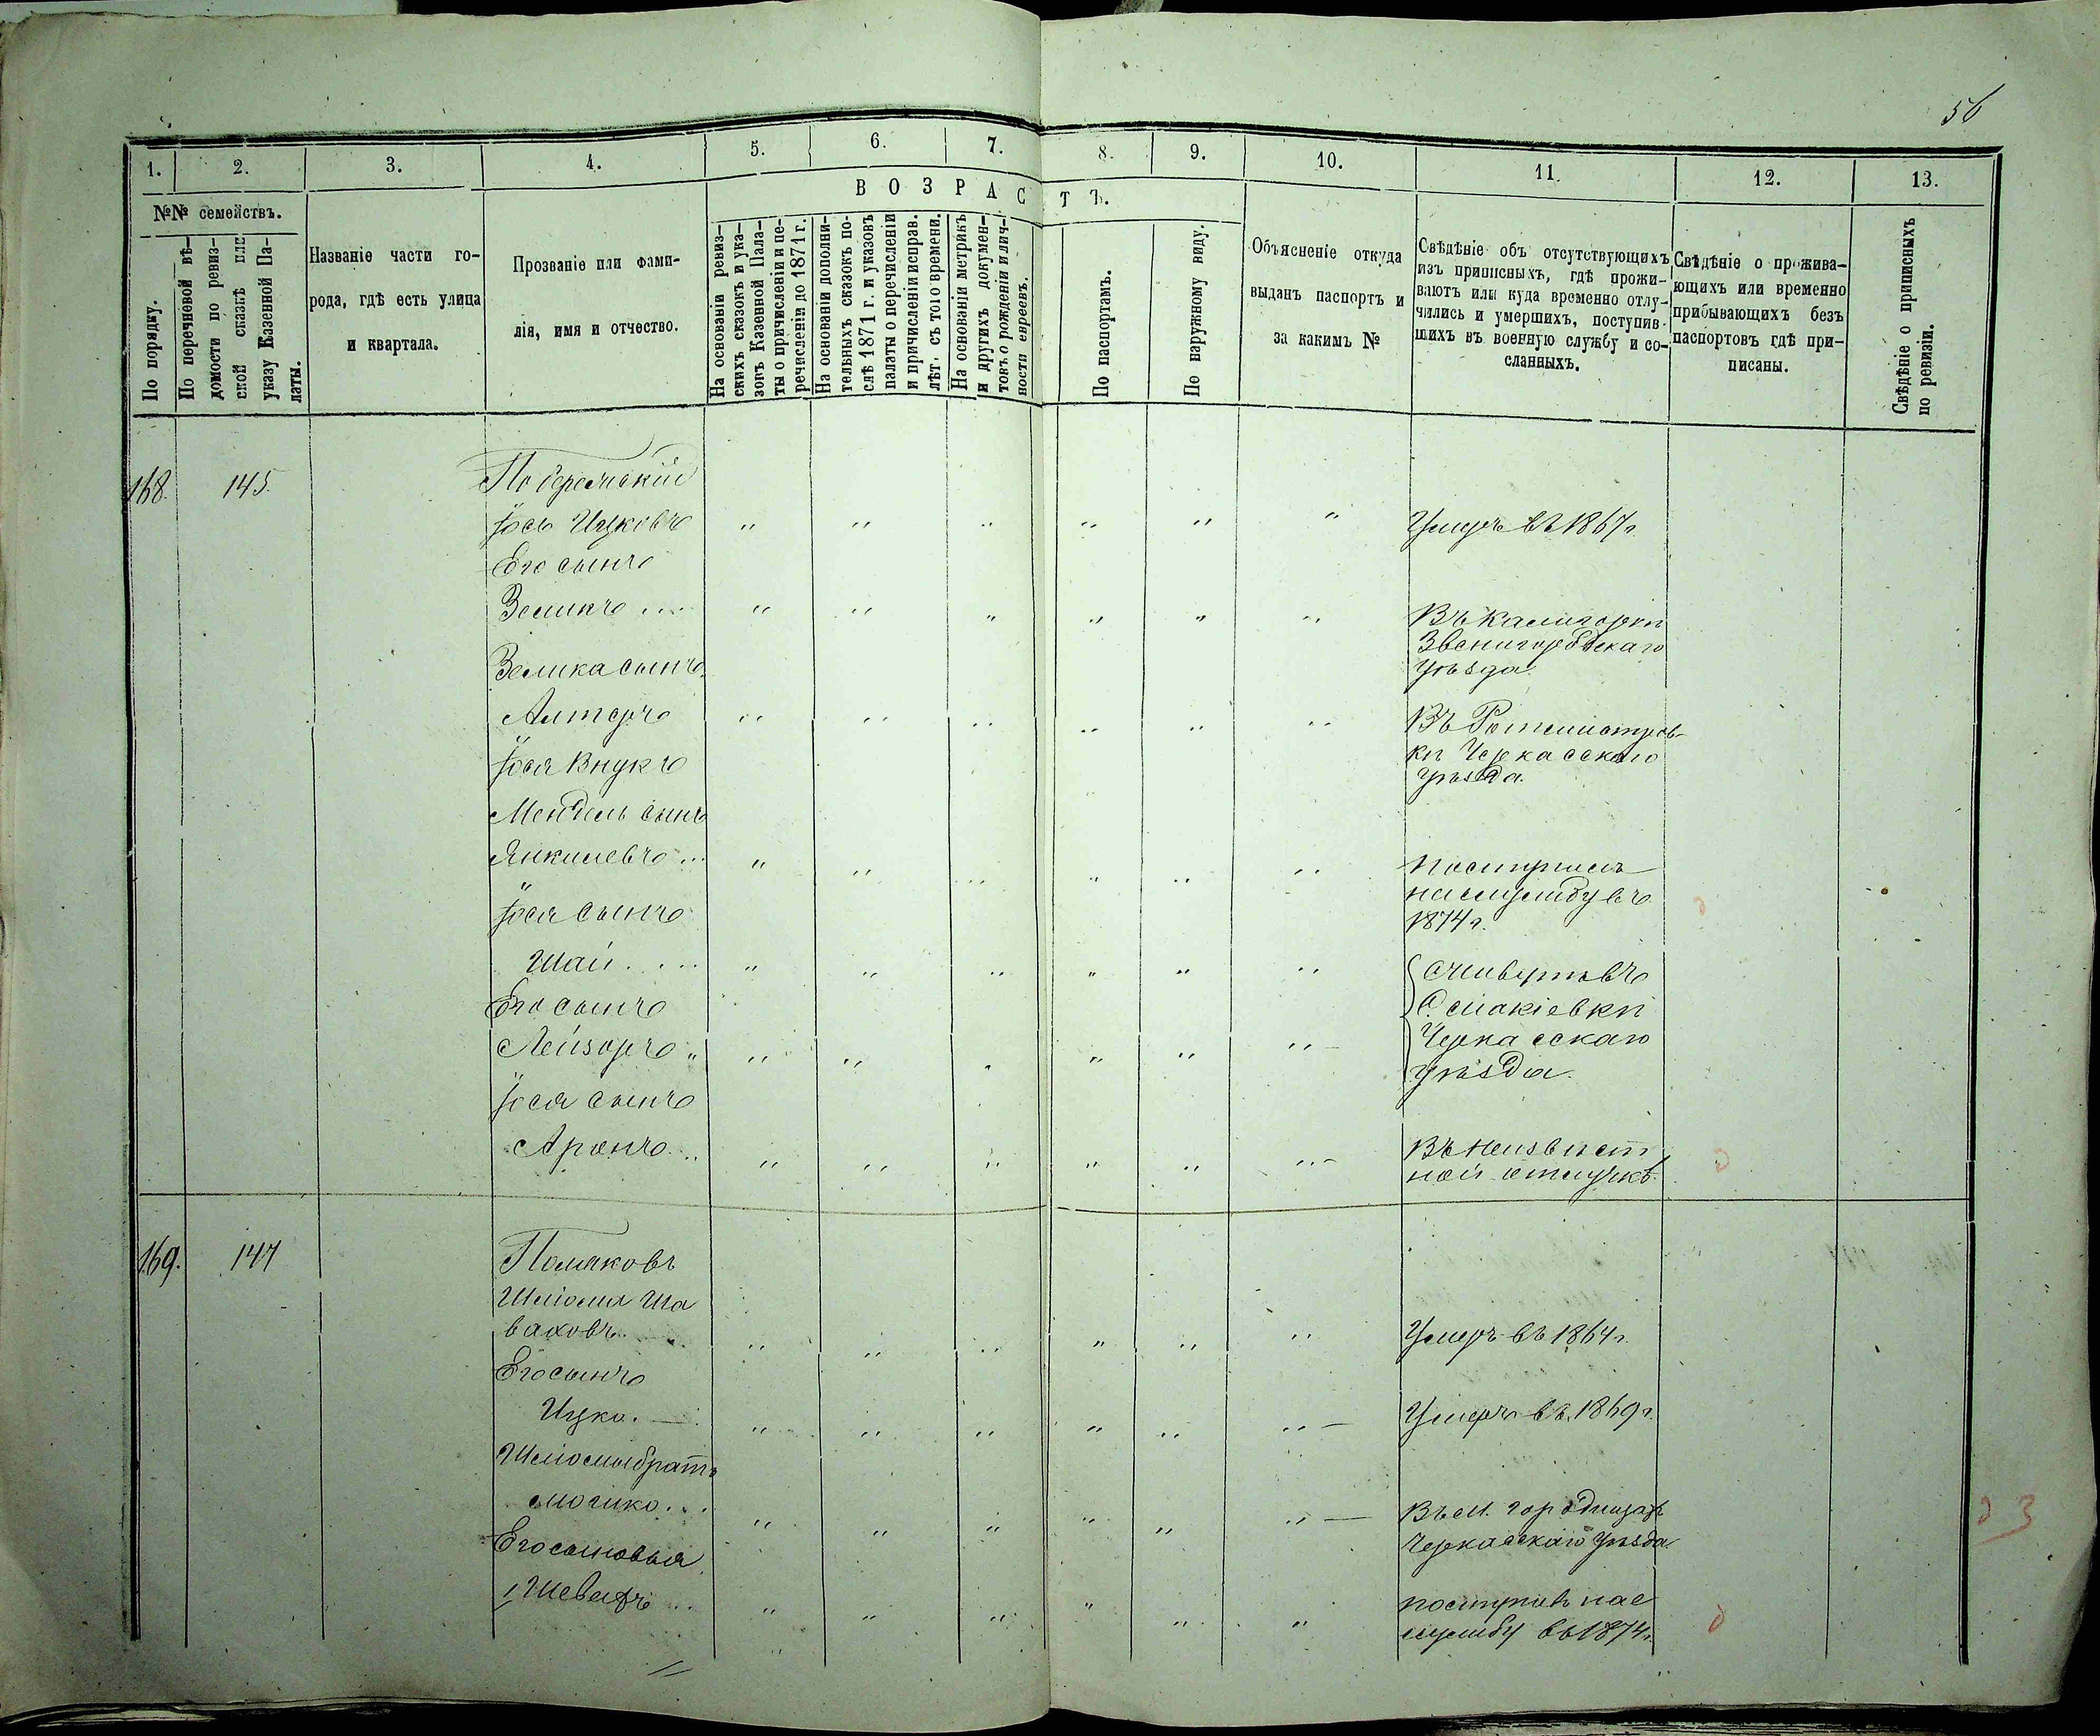 56
1. 2. 3. 4. 5. 6. 7. 8. 9. 10. 11. 12. 13.
№№ семействъ.
ВОЗРАСТЪ.
По порядку.
По перечневой вѣ-
домости по ревиз-
ской сказкѣ или
указу Казенной Па-
латы.
Названіе части го-
рода, гдѣ есть улица
и квартала.
Прозваніе или фами-
лія, имя и отчество.
На основаніи ревиз-
скихъ сказокъ и ука-
зовъ Казенной Пала-
ты о причисленіи и пе-
речисленіи до 1871 г.
На основаніи дополни-
тельныхъ сказокъ по-
слѣ 1871 г. и указовъ
палаты о перечисленіи
и причисленіи исправ.
лѣт. съ того времени.
На основаніи метрикъ
и другихъ докумен-
товъ о рожденіи и лич-
ности евреевъ.
По паспортамъ.
По наружному виду.
Объясненіе откуда
выданъ паспортъ и
за какимъ №
Свѣдѣніе объ отсутствующихъ
изъ приписныхъ, гдѣ прожи-
ваютъ или куда временно отлу-
чились и умершихъ, поступив-
шихъ въ военную службу и со-
сланныхъ.
Свѣдѣніе о прожива-
ющихъ или временно
прибывающихъ безъ
паспортовъ гдѣ при-
писаны.
Свѣдѣніе о приписныхъ
по ревизіи.
168. 145.
Іось Ицковъ " " " " " " Умеръ въ 1867 г.
Его сынъ
Зеликъ .... " " " " " " Въ Калигорки
Звенигородскаго
уѣзда
Зелика сынъ
Алтеръ " " " " " " Въ Ротмистров-
ки Черкасского
уѣзда.
Іося внукъ
Мендель сынъ
Янкилевъ ... " " " " " " поступилъ
на службу въ
1874 г.
Іося сынъ
Шай .... " " " " " " живутъ въ
Смакіевки
Его сынъ
Лейзоръ " " " " " " " Черкасскаго
уѣзда.
Іося сынъ
Аронъ .. " " " " " " Въ неизвѣст
ной отлучкѣ.
169. 147
Поляковъ
Шліома Ша
ваховъ.. " " " " " " Умеръ въ 1864 г.
Его сынъ
Ицко. " " " " " " Умеръ въ 1869 г.
Шліомы братъ
Мошко... " " " " " " Въ м. Городищахъ
Черкасскаго уѣзда
Его сыновья
1 Шевахъ .. " " " " " " поступилъ на с
лужбу въ 1874 г.